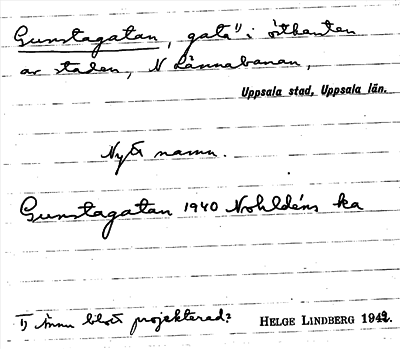 Gunstagatan, gata¹⁾ i östkanten
av staden, N Lännabanan,
Uppsala stad, Uppsala län.
Nytt namn.
Gunstagatan 1940 Nohldéns ka
1) Ännu blott projekterad?
HELGE LINDBERG 1942.